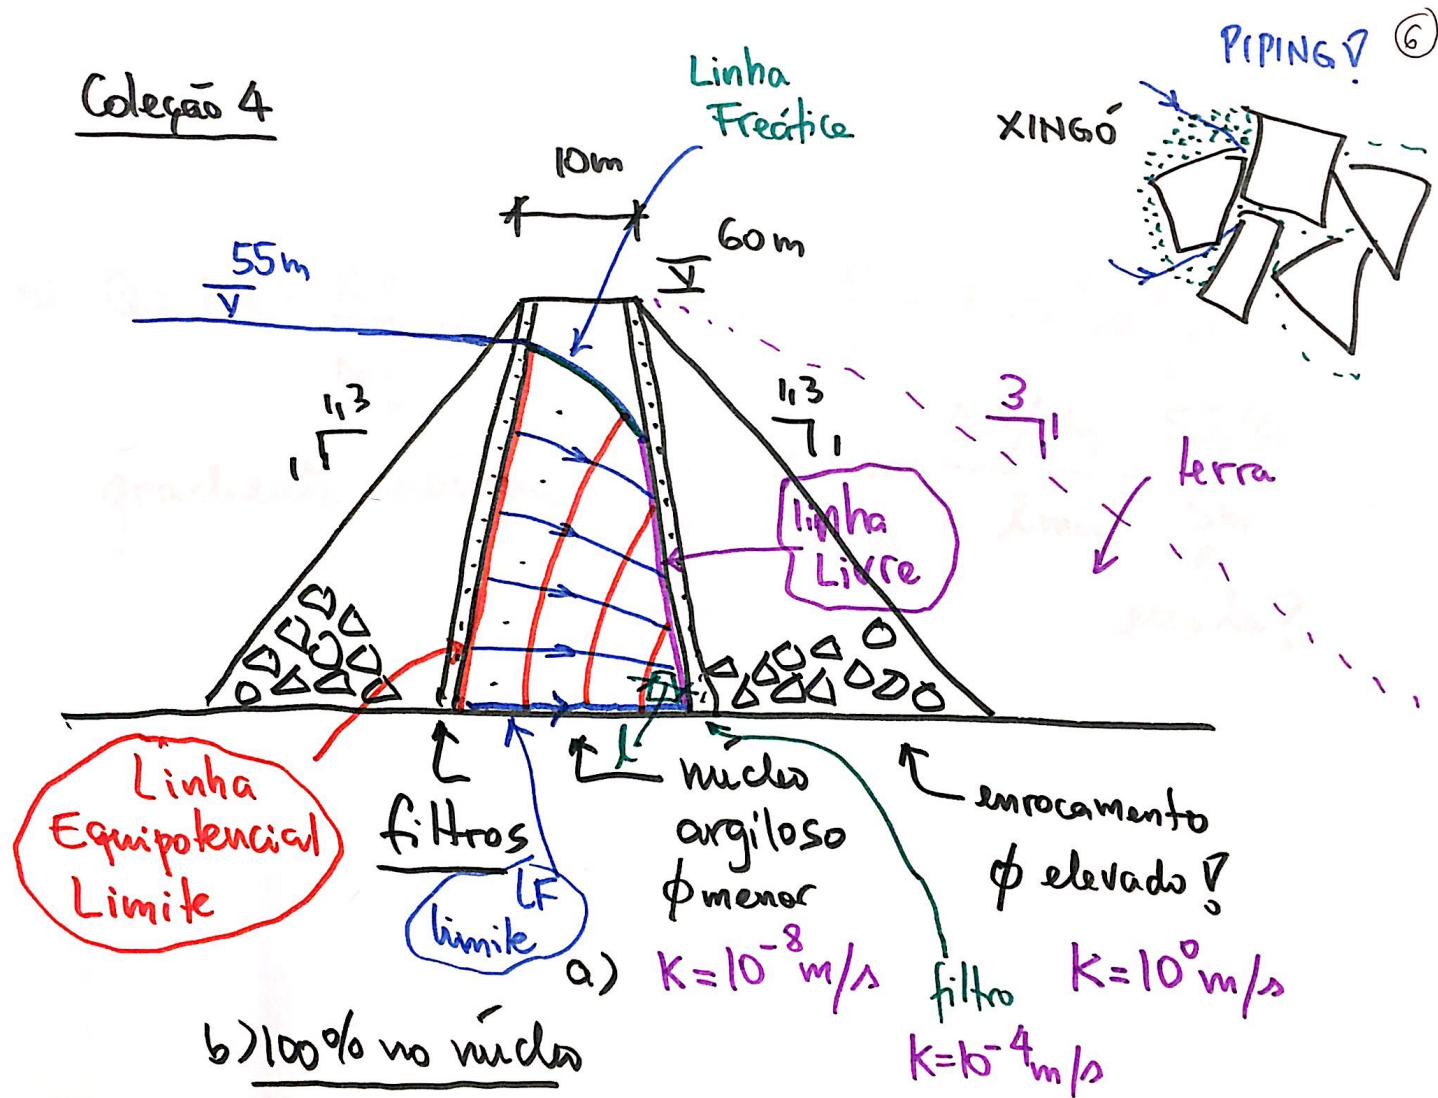 6
PIPING!
Coleção 4
Linha
Freática
XINGÓ
10m
60m
55m
1,3
1
1,3
1
3
1
terra
linha
Livre
Linha
Equipotencial
Limite
filtros
LF
limite
l
núcleo
argiloso
ϕ menor
enrocamento
ϕ elevado!
a) K=10⁻⁸ m/s
filtro
K=10⁻⁴ m/s
K=10⁰ m/s
b) 100% no núcleo